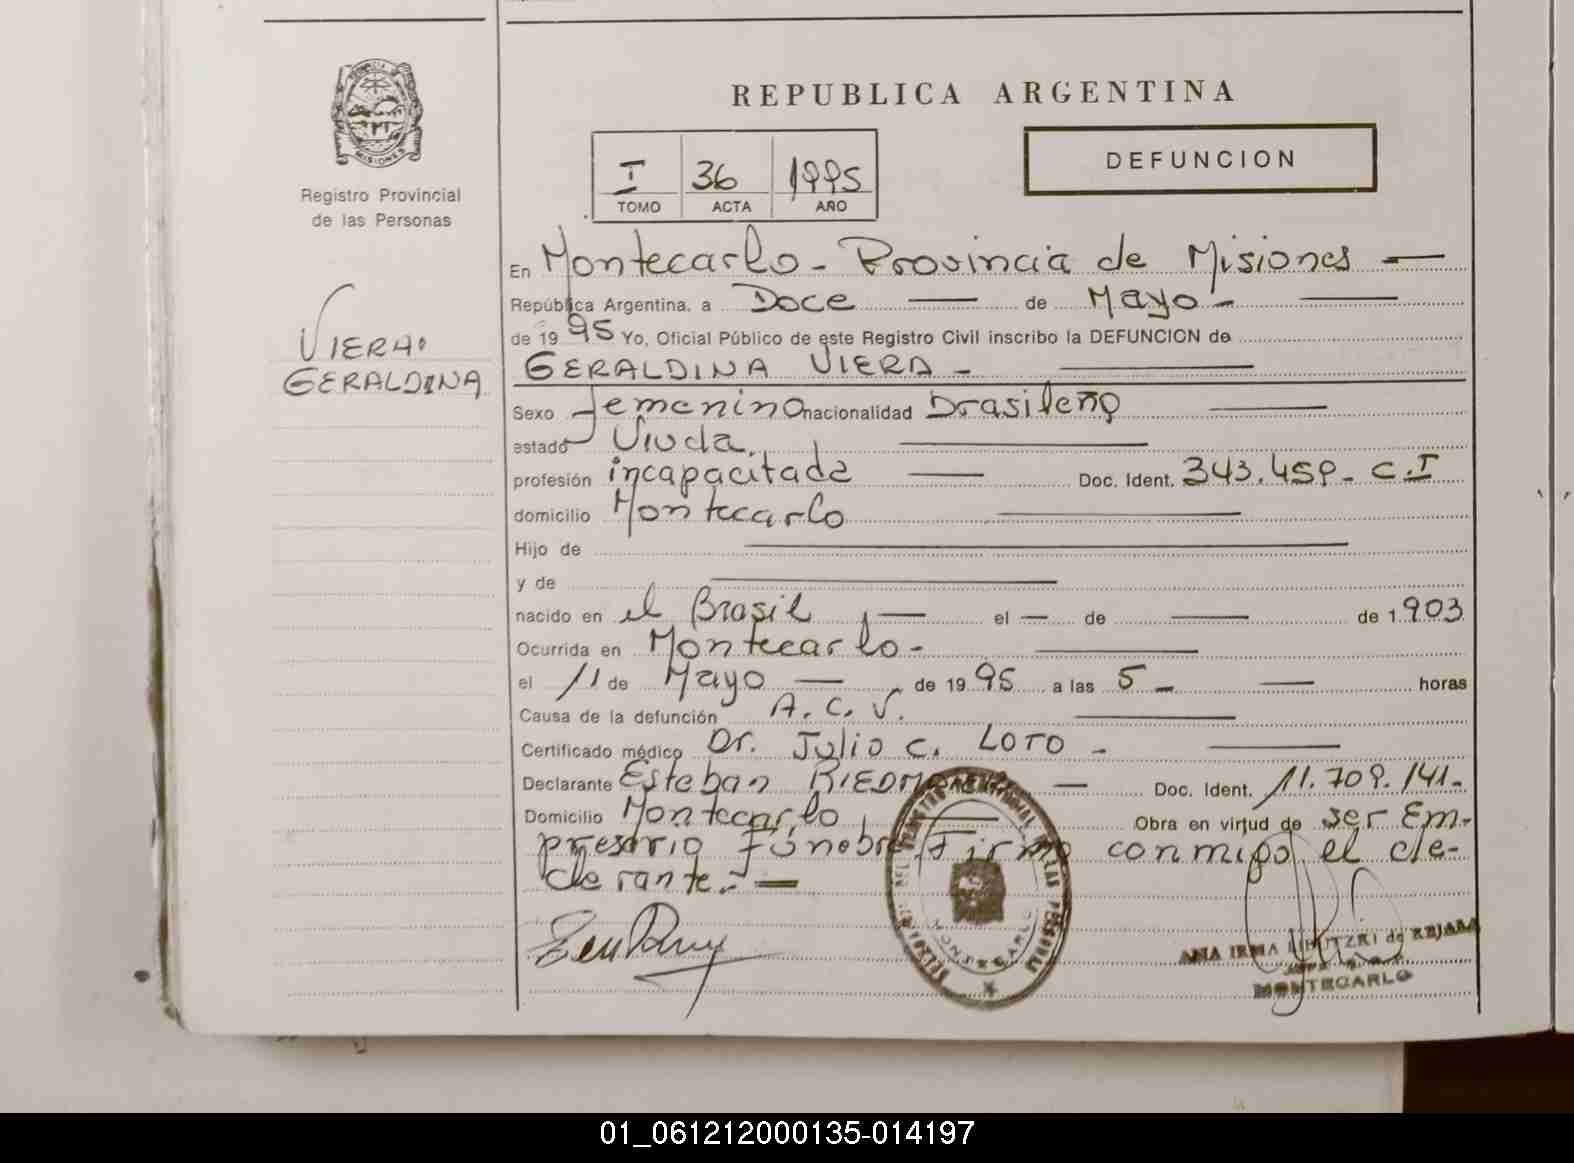 REPUBLICA ARGENTINA
MISIONES
Registro Provincial
de las Personas
I 36 1995
TOMO ACTA AÑO
DEFUNCION
VIERA:
GERALDINA
En Montecarlo - Provincia de Misiones
República Argentina, a Doce de Mayo -
de 1995 Yo, Oficial Público de este Registro Civil inscribo la DEFUNCION de
GERALDINA VIERA -
Sexo femenino nacionalidad brasileño
estado Viuda.
profesión incapacitada Doc. Ident. 343.459 - C.I
domicilio Montecarlo
Hijo de
y de
nacido en el Brasil, el de de 1903
Ocurrida en Montecarlo -
el 11 de Mayo de 1995 a las 5 - horas
Causa de la defunción A. C. V.
Certificado médico Dr. Julio C. LOTO -
Declarante Esteban Doc. Ident. 11.709.141 -
Domicilio Montecarlo Obra en virtud de ser Em-
presario Fúnebre. Firma conmigo el de-
clarante. -
MONTECARLO
ANA IRMA de REJALA
MONTECARLO
01_061212000135-014197